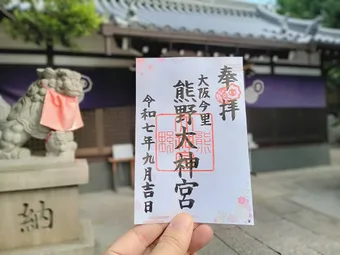 奉拝
大阪今里
熊野大神宮
令和七年九月吉日
納